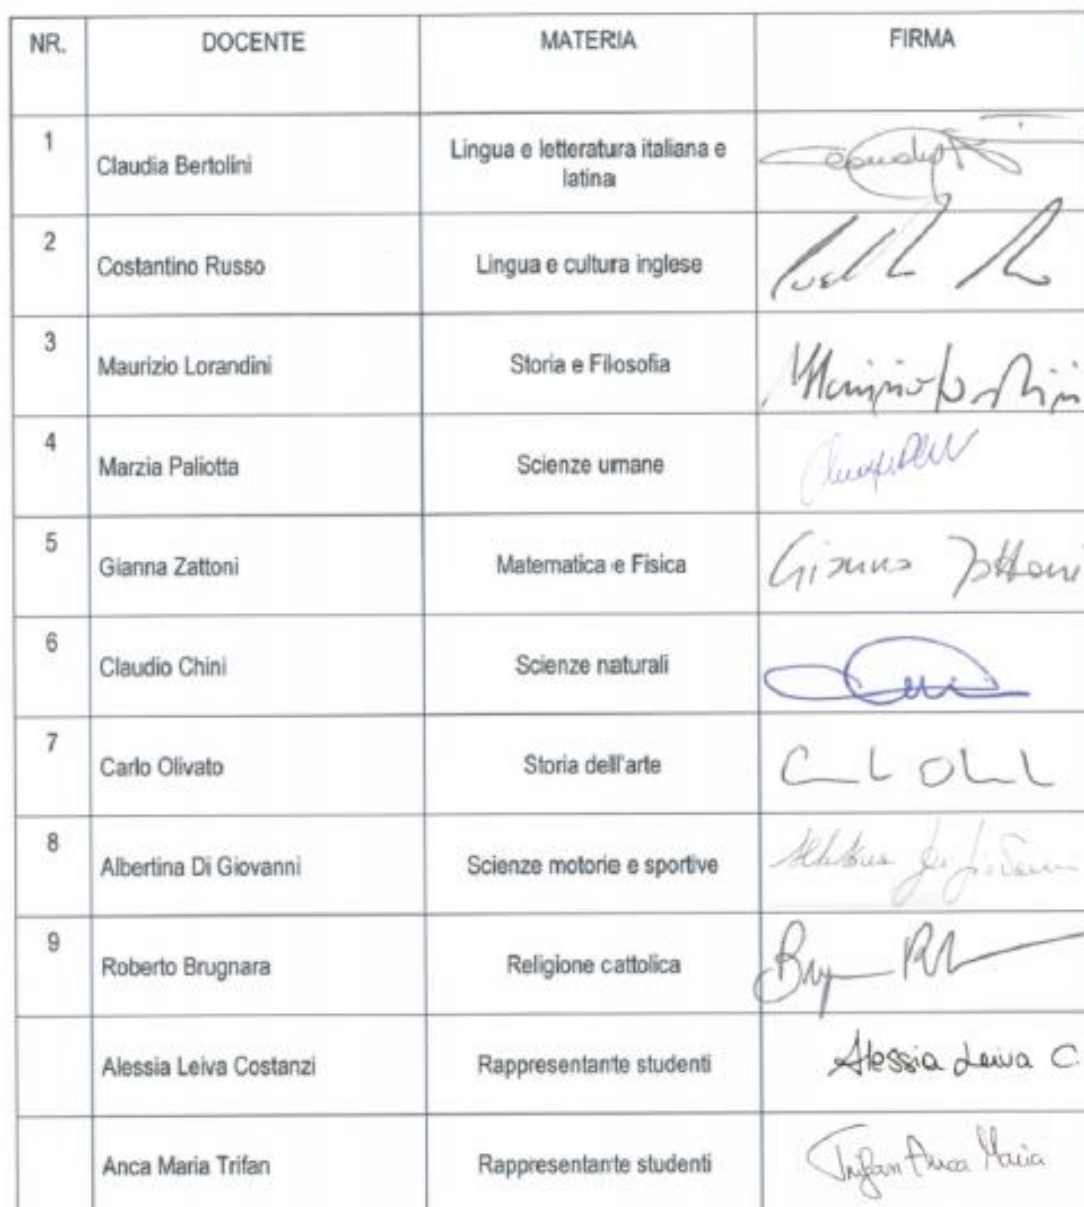 NR. DOCENTE MATERIA FIRMA
1 Claudia Bertolini Lingua e letteratura italiana e
latina
2 Costantino Russo Lingua e cultura inglese
3 Maurizio Lorandini Storia e Filosofia
4 Marzia Paliotta Scienze umane
5 Gianna Zattoni Matematica e Fisica Gianna Zattoni
6 Claudio Chini Scienze naturali
7 Carlo Olivato Storia dell'arte
8 Albertina Di Giovanni Scienze motorie e sportive
9 Roberto Brugnara Religione cattolica
Alessia Leiva Costanzi Rappresentante studenti Alessia Leiva C.
Anca Maria Trifan Rappresentante studenti Trifan Anca Maria